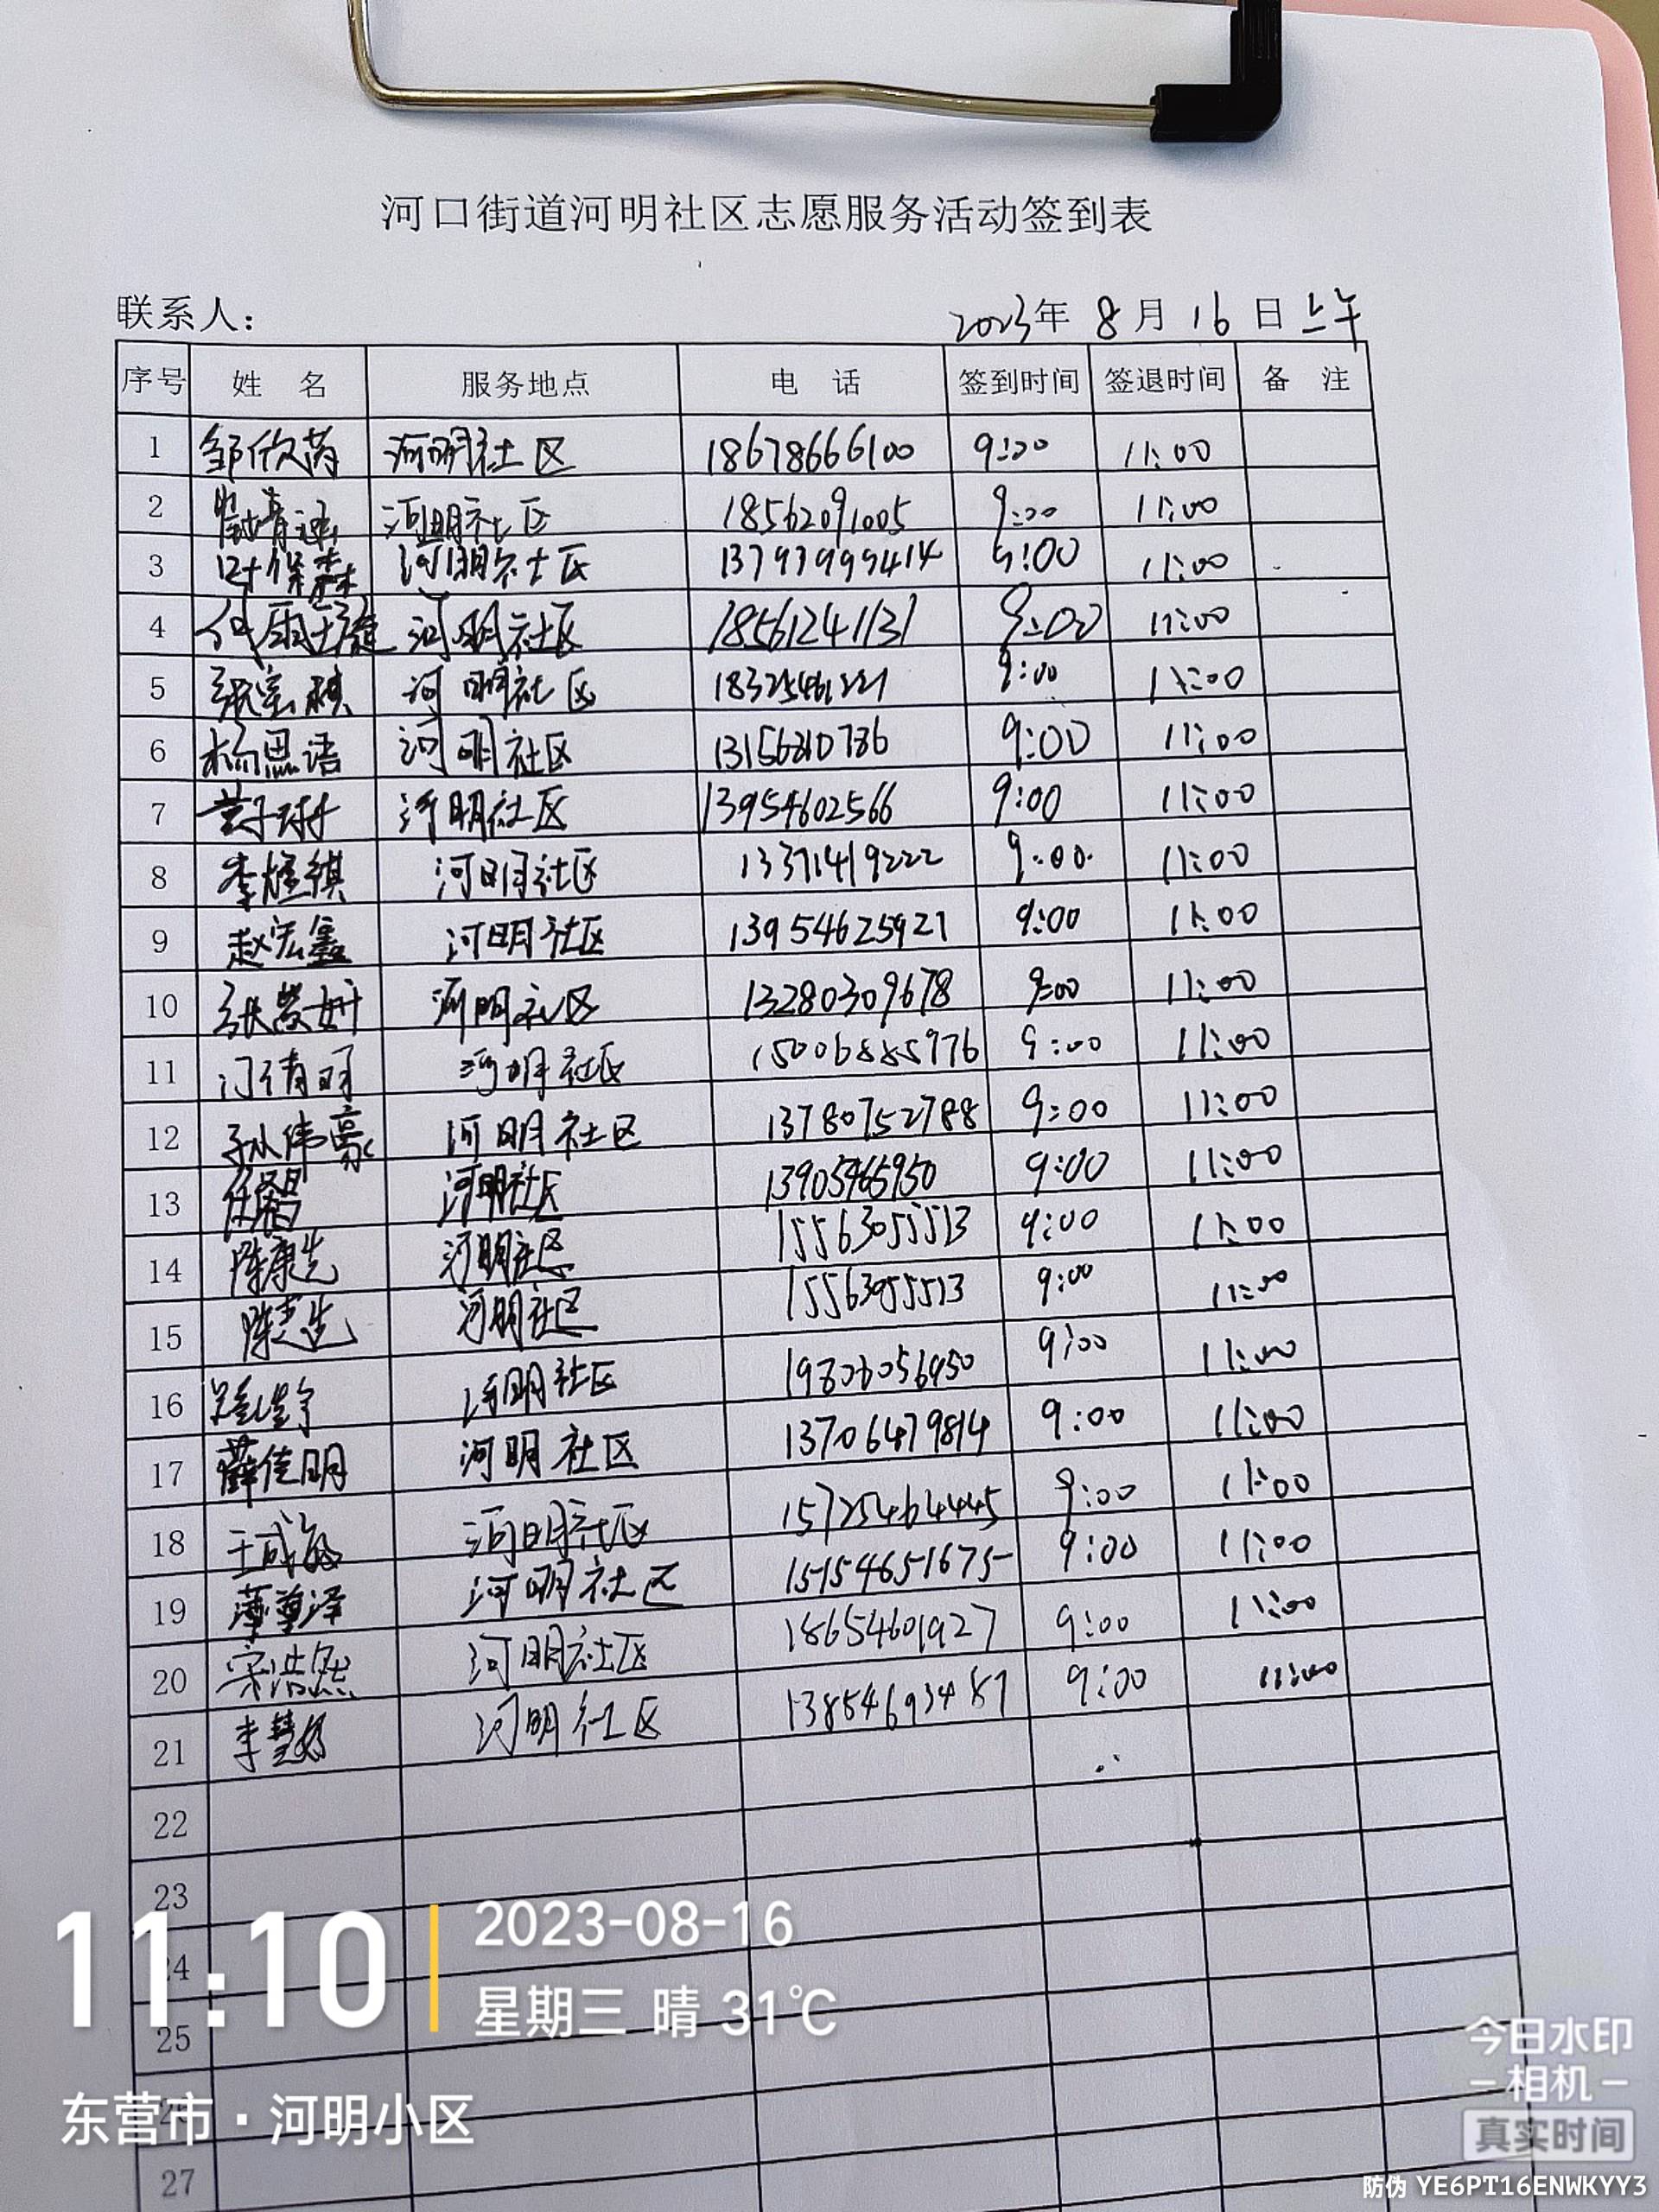 河口街道河明社区志愿服务活动签到表
联系人： 2023年 8月 16日 上午
序号 姓 名 服务地点 电 话 签到时间 签退时间 备 注
1 邹欣芮 河明社区 18678666100 9:00 11:00
2 河明社区 18562091005 9:00 11:00
3 河明社区 9:00 11:00
4 何雨璇 河明社区 18561241131 9:00 11:00
5 河明社区 9:00 11:00
6 杨思语 河明社区 9:00 11:00
7 河明社区 13954602566 9:00 11:00
8 李煜祺 河明社区 13371419222 9:00 11:00
9 赵宏鑫 河明社区 13954625921 9:00 11:00
10 河明社区 13280309678 9:00 11:00
11 河明社区 15006885976 9:00 11:00
12 孙伟豪 河明社区 13780752788 9:00 11:00
13 河明社区 13905465950 9:00 11:00
14 陈康先 河明社区 15563055513 9:00 11:00
15 河明社区 15563055513 9:00 11:00
16 河明社区 9:00 11:00
17 薛佳明 河明社区 13706479814 9:00 11:00
18 河明社区 15725464445 9:00 11:00
19 河明社区 15154651675 9:00 11:00
20 宋浩然 河明社区 18654601927 9:00 11:00
21 李慧妤 河明社区 13854693487 9:00 11:00
22
23
24
25
26
27
11:10
2023-08-16
星期三 晴 31℃
东营市·河明小区
今日水印
相机
真实时间
防伪 YE6PT16ENWKYY3